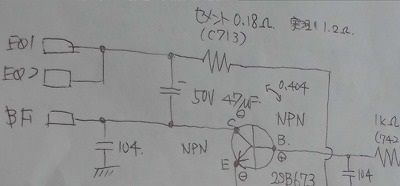 セメント 0.18Ω 実測 1.2Ω
(C713)
EQ1
EQ2
50V 47μF
0.404
BF
C
NPN
NPN
B
E
1kΩ
104
104
2SB673